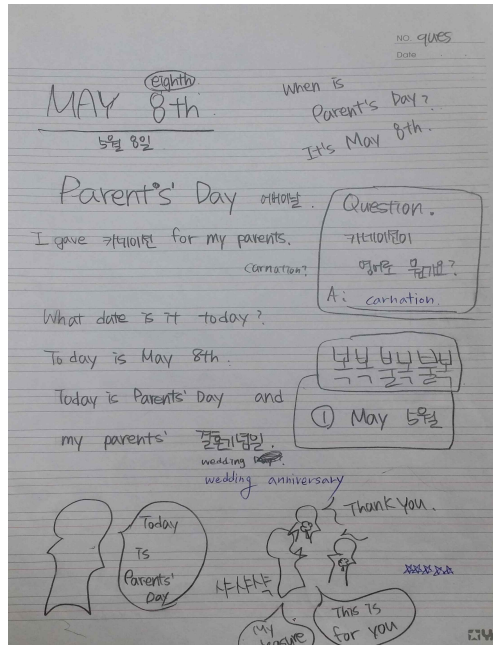 NO. ques
Date
eighth
MAY 8th
5월 8일
When is
Parent's Day?
It's May 8th.
Parents' Day 어버이날.
I gave 카네이션 for my parents.
carnation?
Question.
카네이션이
영어로 뭔가요?
A: carnation
What date is it today?
Today is May 8th.
복복 붉북 붉복
Today is Parents' Day and
① May 5월
my parents' 결혼기념일.
wedding
wedding anniversary
Thank you.
Today
is
Parents'
Day
샤샤샥
This is
for you
My
pleasure